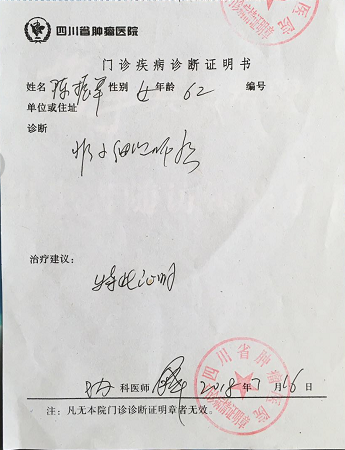 四川省肿瘤医院
门诊疾病诊断证明书
姓名 陈 性别 女 年龄 62 编号
单位或住址
诊断
非小细胞肺癌
治疗建议:
特此证明
科医师 2018年7月16日
四川省肿瘤医院
门诊疾病诊断证明章
注:凡无本院门诊诊断证明章者无效。